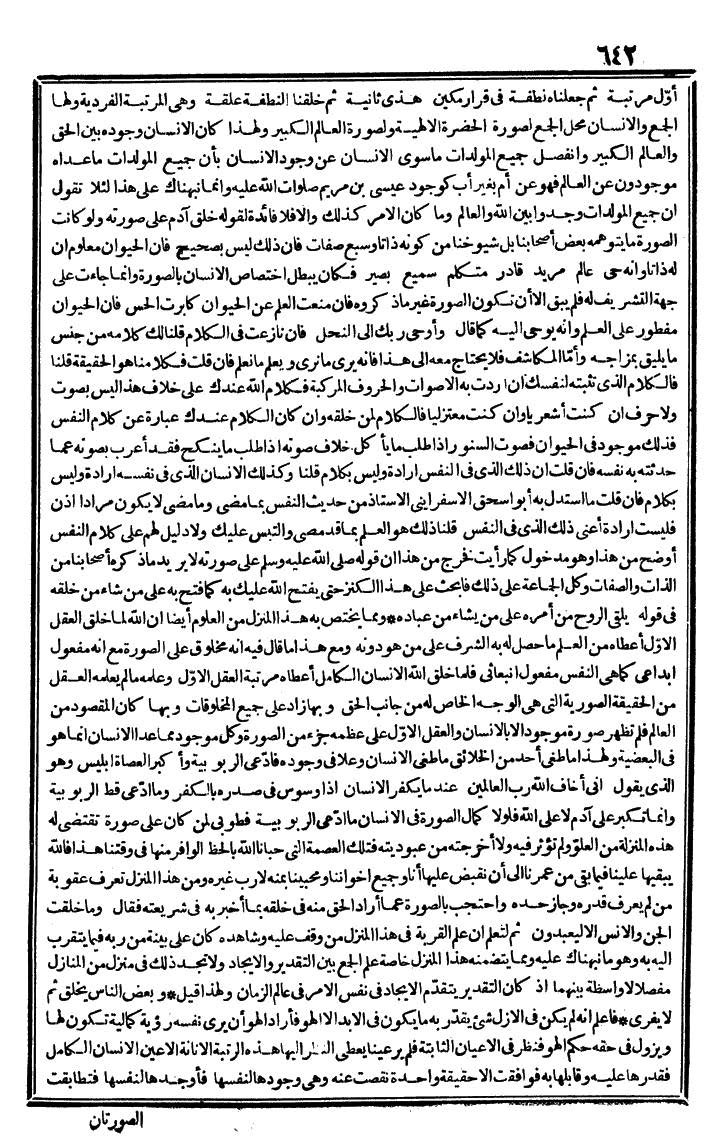 ٦٤٢
أوّل مرتبة ثم جعلناه نطفة فى قرار مكين هذى ثانية ثم خلقنا النطفة علقة وهى المرتبة الفردية ولها
الجمع والانسان محل الجمع لصورة الحضرة الالهية ولصورة العالم الكبير ولهذا كان الانسان وجوده بين الحق
والعالم الكبير وانفصل جميع المولدات ماسوى الانسان عن وجود الانسان بأن جميع المولدات ماعداه
موجودون عن العالم فهو عن أم بغير أب كوجود عيسى بن مريم صلوات الله عليه وانما نبهناك على هذا لئلا تقول
ان جميع المولدات وجدوا بين الله والعالم وما كان الامر كذلك والافلا فائدة لقوله خلق آدم على صورته ولو كانت
الصورة مايتوهمه بعض أصحابنا بل شيوخنا من كونه ذاتا وسبع صفات فان ذلك ليس بصحيح فان الحيوان معلوم ان
له ذاتا وانه حى عالم مريد قادر متكلم سميع بصير فكان يبطل اختصاص الانسان بالصورة وانما جاءت على
جهة التشريف له فلم يبق الا أن تكون الصورة غير ماذكروه فان منعت العلم عن الحيوان كابرت الحس فان الحيوان
مفطور على العلم وانه يوحى اليه كما قال وأوحى ربك الى النحل فان نازعت فى الكلام قلنا لك كلامه من جنس
مايليق بمزاجه وأمّا المكاشف فلا يحتاج معه الى هذا فانه يرى مانرى ويعلم مانعلم فان قلت فكلامنا هو الحقيقة قلنا
فالكلام الذى تثبته لنفسك ان اردت به الاصوات والحروف المركبة فكلام الله عندك على خلاف هذا ليس بصوت
ولاحرف ان كنت أشعريا وان كنت معتزليا فالكلام لمن خلقه وان كان الكلام عندك عبارة عن كلام النفس
فذلك موجود فى الحيوان فصوت السنور اذا طلب مايأكل خلاف صوته اذا طلب ماينكح فقد أعرب بصوته عما
حدثته به نفسه فان قلت ان ذلك الذى فى النفس ارادة وليس بكلام قلنا وكذلك الانسان الذى فى نفسه ارادة وليس
بكلام فان قلت ما استدل به أبو اسحق الاسفراينى الاستاذ من حديث النفس بما مضى وما مضى لايكون مرادا اذن
فليست ارادة أعنى ذلك الذى فى النفس قلنا ذلك هو العلم بما قد مضى والتبس عليك ولادليل لهم على كلام النفس
أوضح من هذا وهو مدخول كما رأيت نخرج من هذا ان قوله صلى الله عليه وسلم على صورته لايريد ماذكره أصحابنا من
الذات والصفات وكل الجماعة على ذلك فابحث على هذا الكنز حتى يفتح الله عليك به كما فتح به على من شاء من خلقه
فى قوله يلقى الروح من أمره على من يشاء من عباده * ومما يختص به هذا المنزل من العلوم أيضا ان الله لما خلق العقل
الاوّل أعطاه من العلم ماحصل له به الشرف على من هو دونه ومع هذا ماقال فيه انه مخلوق على الصورة مع انه مفعول
ابداعى كما هى النفس مفعول انبعاثى فلما خلق الله الانسان الكامل أعطاه مرتبة العقل الاوّل وعلمه مالم يعلمه العقل
من الحقيقة الصورية التى هى الوجه الخاص له من جانب الحق وبها زاد على جميع المخلوقات وبها كان المقصود من
العالم فلم تظهر صورة موجود الا بالانسان والعقل الاوّل على عظمه جزء من الصورة وكل موجود مماعدا الانسان انما هو
فى البعضية ولهذا ماطغى أحد من الخلائق ماطغى الانسان وعلا فى وجوده فادّعى الربوبية وأكبر العصاة ابليس وهو
الذى يقول انى أخاف الله رب العالمين عند مايكفر الانسان اذا وسوس فى صدره بالكفر وما ادّعى قط الربوبية
وانما تكبر على آدم لاعلى الله فلولا كمال الصورة فى الانسان ما ادّعى الربوبية فطوبى لمن كان على صورة تقتضى له
هذه المنزلة من العلوّ ولم تؤثر فيه ولا أخرجته من عبوديته فتلك العصمة التى حبانا الله بالحظ الوافر منها فى وقتنا هذا فالله
يبقيها علينا فيما بقى من عمرنا الى أن نقبض عليها أنا وجميع اخواننا ومحبينا بمنه لارب غيره ومن هذا المنزل تعرف عقوبة
من لم يعرف قدره وجاز حده واحتجب بالصورة عما أراد الحق منه فى خلقه بما أخبر به فى شريعته فقال وما خلقت
الجن والانس الا ليعبدون ثم لتعلم ان علم القربة فى هذا المنزل من وقف عليه وشاهده كان على بينة من ربه فيما يتقرب
اليه به وهو مانبهناك عليه ومما يتضمنه هذا المنزل خاصة علم الجمع بين التقدير والايجاد ولاتجد ذلك فى منزل من المنازل
مفصلا لاواسطة بينهما اذ كان التقدير يتقدّم الايجاد فى نفس الامر فى عالم الزمان ولهذا قيل * وبعض الناس يخلق ثم
لايفرى * فاعلم انه لم يكن فى الازل شئ يقدّر به مايكون فى الابد الا الهو فأراد الهو أن يرى نفسه رؤية كمالية تكون لها
ويزول فى حقه حكم الهو فنظر فى الاعيان الثابتة فلم ير عينا يعطى النظر اليها هذه الرتبة الانانة الاعين الانسان الكامل
فقدرها عليه وقابلها به فوافقت الا حقيقة واحدة نقصت عنه وهى وجودها لنفسها فأوجدها لنفسها فتطابقت
الصورتان